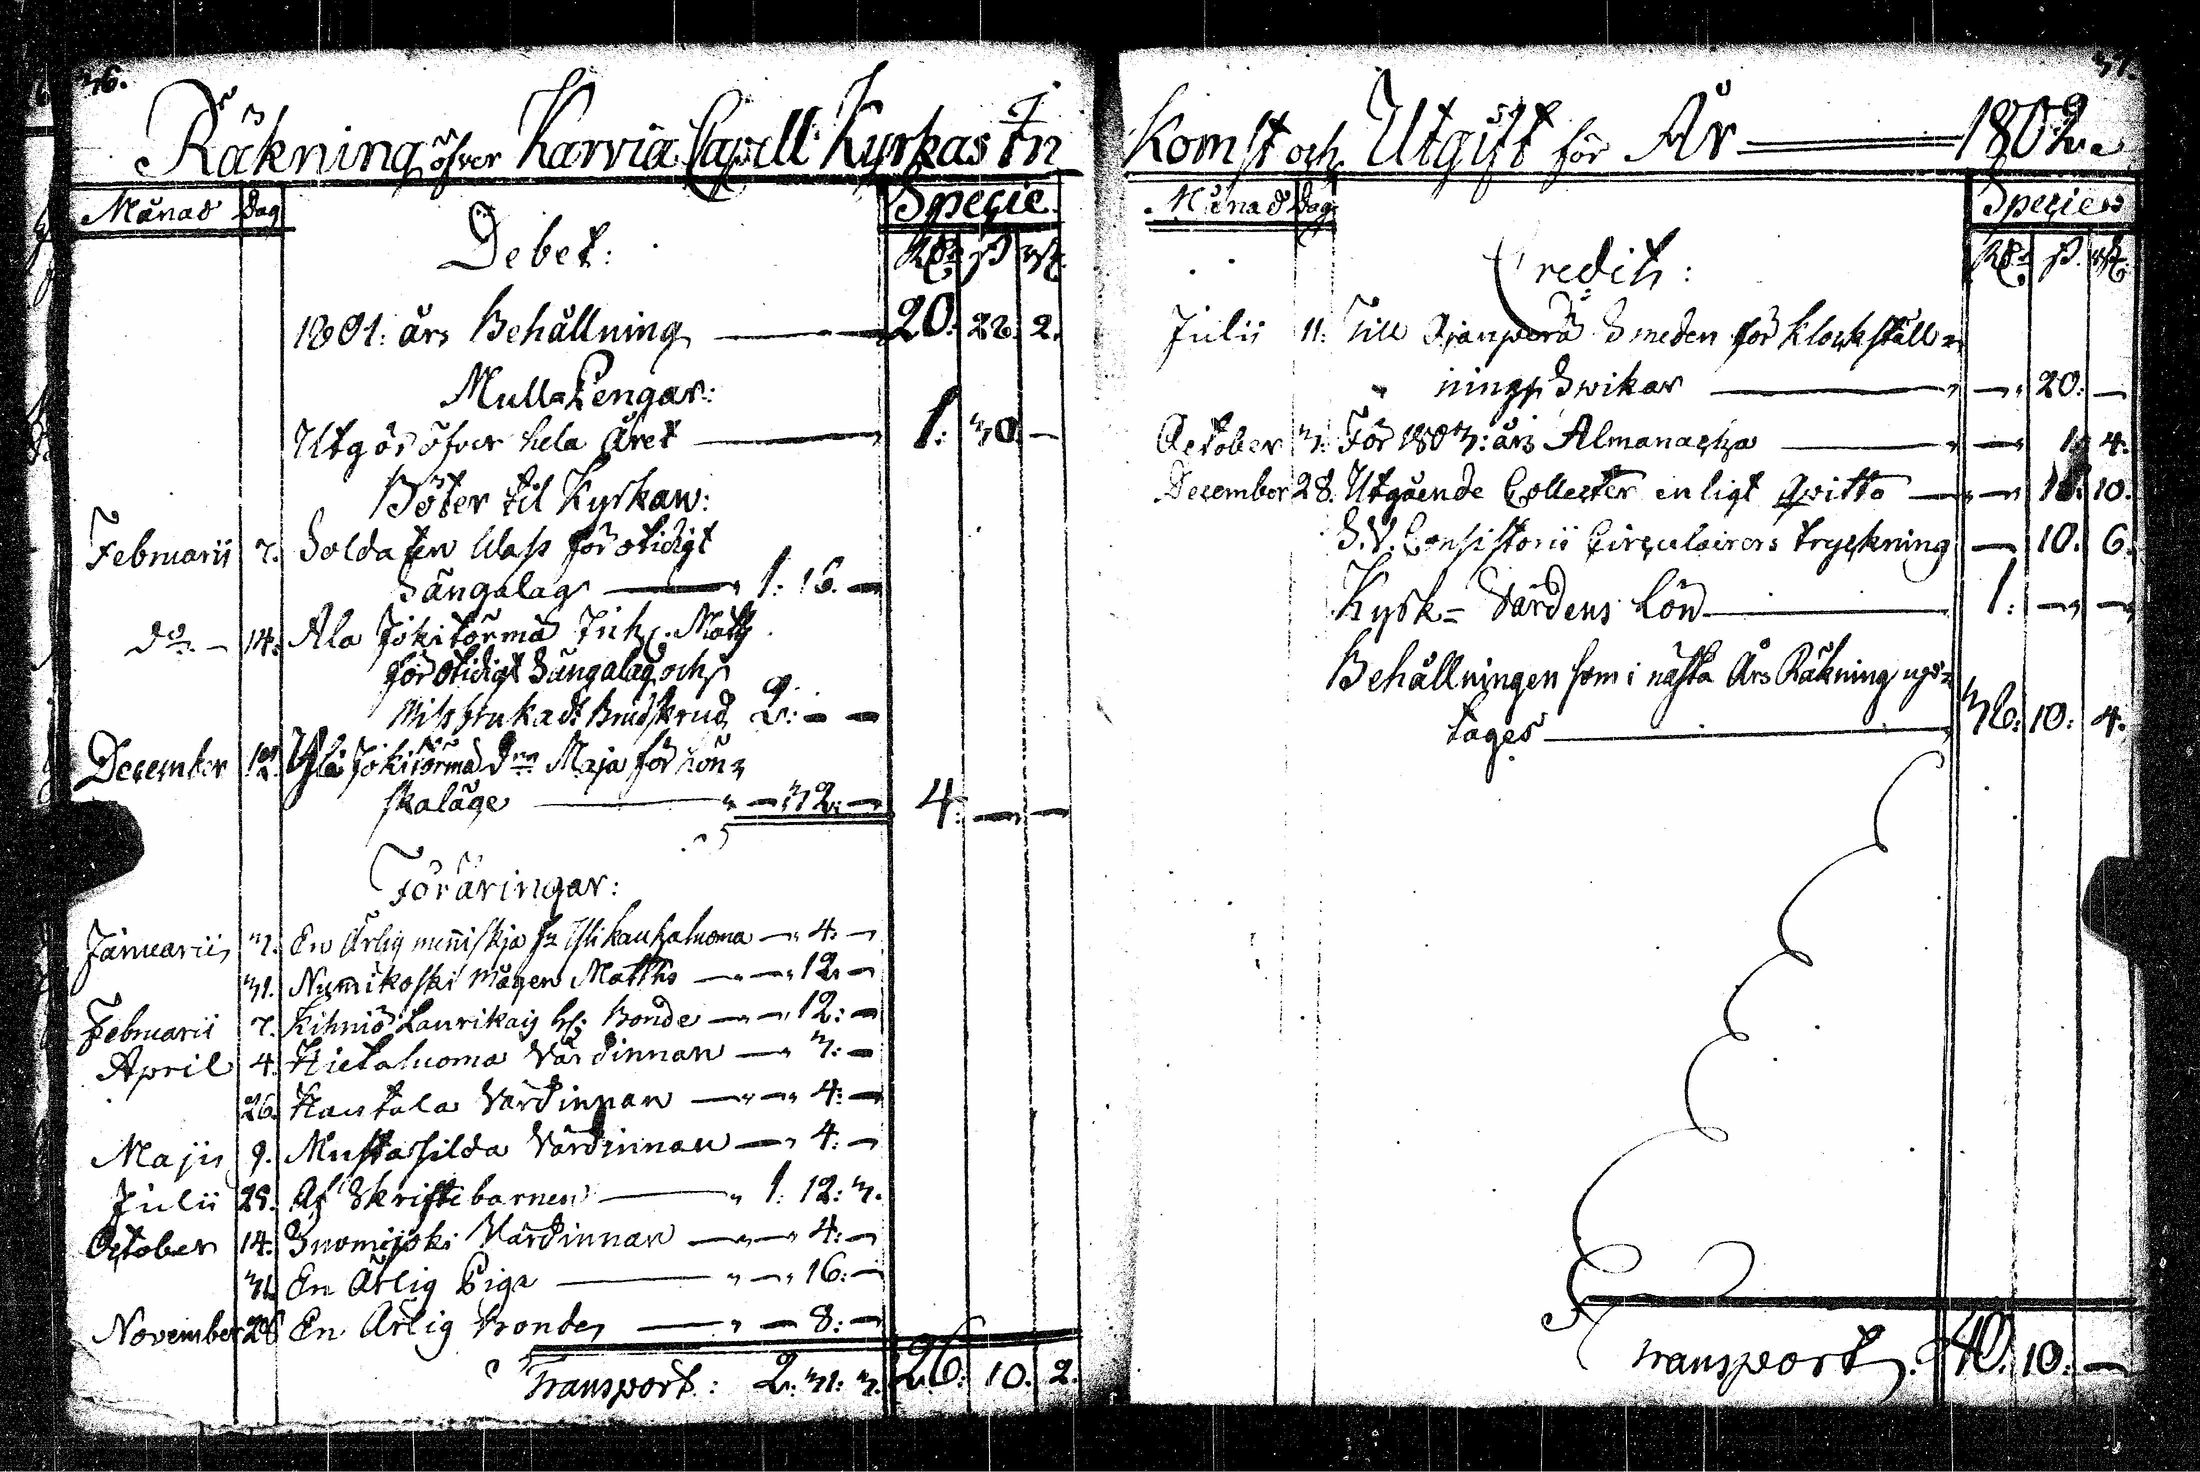 36.
Räkning öfver Karvia Capell Kyrkas In
Månad Dag
Specie
Debet:
Rd. ß rst.
1801: års Behållning 20: 22: 2.
Mull=Pengar:
Utgör öfver hela Året 1: 30. —
Böter til Kyrkan:
Februarii 7. Soldaten Wass för otidigt
Sängalag 1: 16. —
do 14. Ala Jokitörmä Inh. Matts
för otidigt Sängalag och
missbrukadt Brudskrud 2: — —
December Ylä Jokitörmä Maja för Lön=
skaläge — 32: — 4: — —
Föräringar:
Januarii 3. En Ärlig menniskja 4: —
31. Nummikoski Mågen Matths — 12: —
Februarii 7. Kihniö Laurikais Bonde — 12: —
April 4. Hietaluoma Värdinnan — 3: —
26. Hautala Värdinnan — 4: —
Maji 9. Mustasilda Värdinnan — 4: —
Julii 25. Af Skriftebarnen 1: 12: 3.
October 14. Suomijoki Värdinnan — 4: —
31. En Ärlig Piga — 16: —
November 28 En Ärlig Bonde — 8: —
Transport: 2: 31: 3. 26: 10. 2.
37.
komst och Utgift för År 1802.
Månad Dag
Specie
Credit:
Rd. ß. rst.
Julii 11. Till Ojanperä Smeden för Klockställ=
nings Swikar — 20: —
October 3. För 1803: års Almanacka — 1. 4.
December 28. Utgående Collecter enligt Qvitto — 18. 10.
S.V. Consistorii Circulairers tryckning — 10. 6.
Kyrk=Värdens Lön 1: — —
Behållningen som i nästa Års Räkning up=
tages 36: 10: 4.
Transport. 40. 10: —